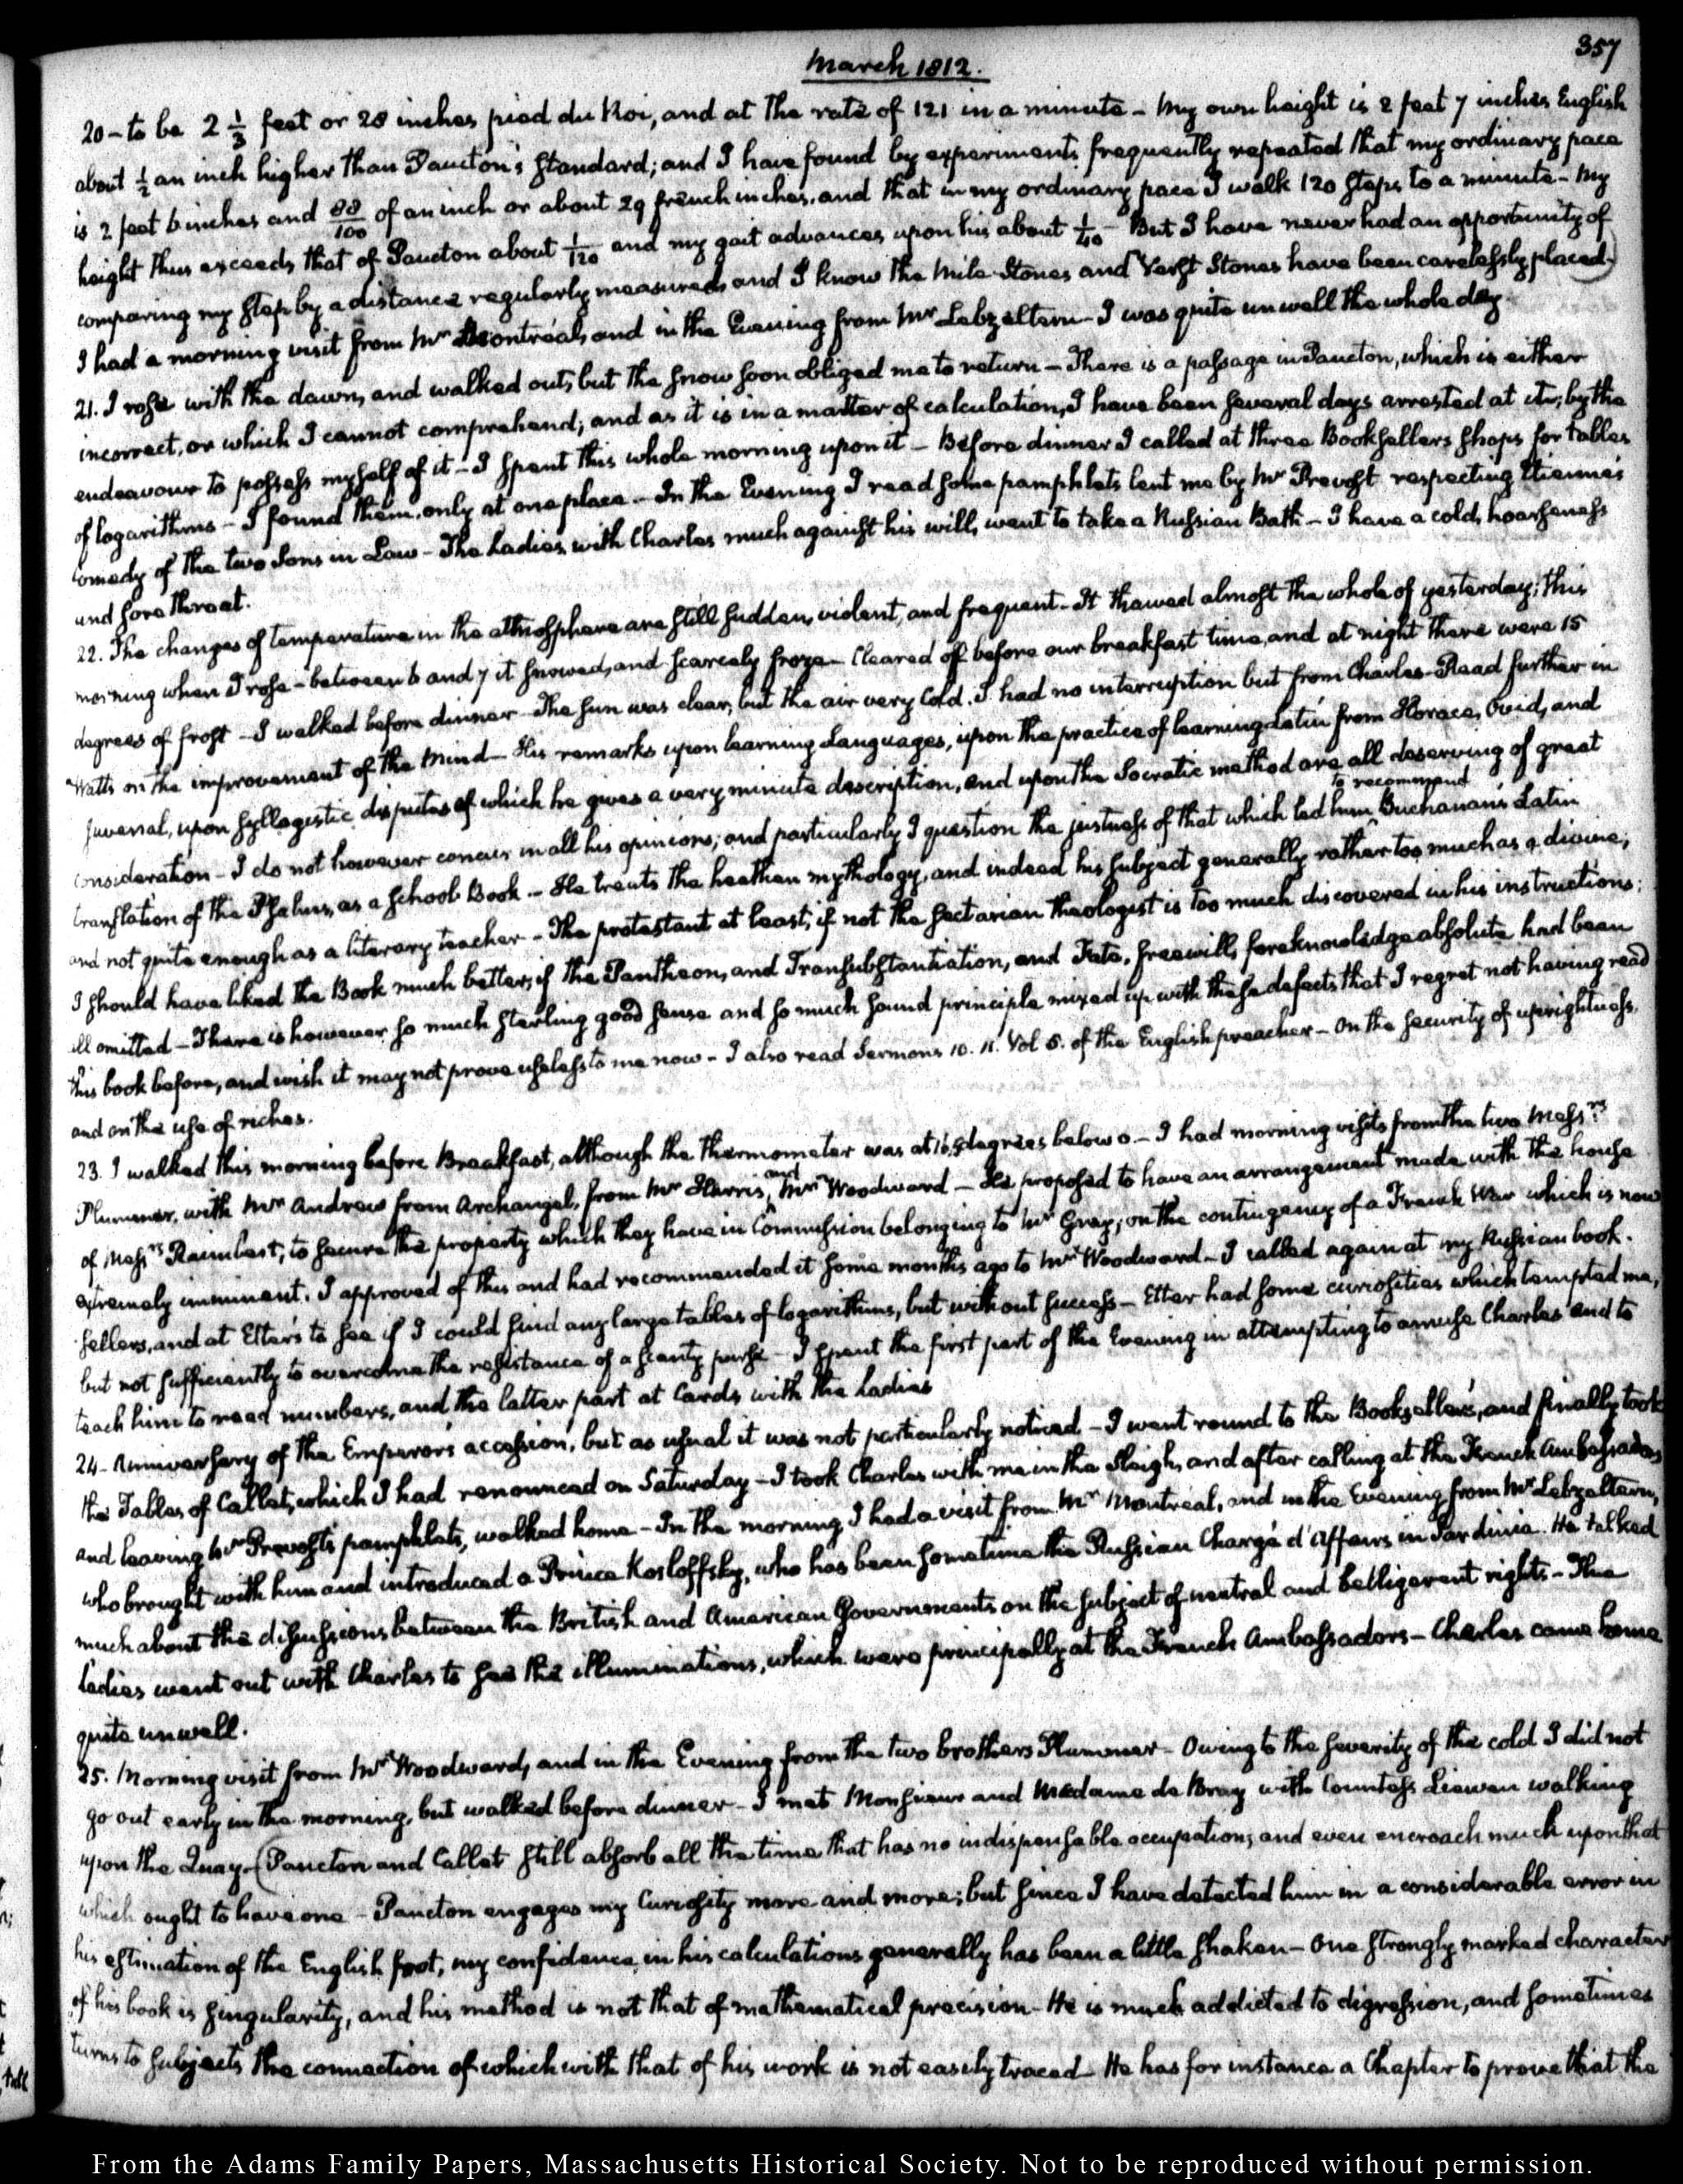 357
March 1812.
20 - to be 2 1/3 feet or 28 inches pied du Roi, and at the rate of 121 in a minute - My own height is 2 feet 7 inches English
about 1/2 an inch higher than Paucton's standard; and I have found by experiments frequently repeated that my ordinary pace
is 2 feet 6 inches and 88/100 of an inch or about 29 french inches, and that in my ordinary pace I walk 120 steps to a minute - My
height thus exceeds that of Paucton about 1/120 and my gait advances upon his about 1/40 - But I have never had an opportunity of
comparing my step by a distance regularly measured, and I know the Mile-Stones and Verst Stones have been carelessly placed)
I had a morning visit from Mr Montréal, and in the Evening from Mr Lebzeltern - I was quite unwell the whole day.
21. I rose with the dawn, and walked out, but the snow soon obliged me to return - There is a passage in Paucton, which is either
incorrect, or which I cannot comprehend; and as it is in a matter of calculation, I have been several days arrested at it, by the
endeavour to possess myself of it - I spent this whole morning upon it - Before dinner I called at three Booksellers shops for tables
of logarithms - I found them, only at one place - In the Evening I read some pamphlets lent me by Mr Prevost respecting Etienne's
Comedy of the two Sons in Law - The Ladies, with Charles much against his will, went to take a Russian Bath - I have a cold, hoarseness
and sore throat.
22. The changes of temperature in the atmosphere are still sudden, violent, and frequent - It thawed almost the whole of yesterday; this
morning when I rose - between 6 and 7 it snowed, and scarcely froze - Cleared off before our breakfast time, and at night there were 15
degrees of frost - I walked before dinner - The sun was clear, but the air very cold. I had no interruption but from Charles - Read further in
Watts on the improvement of the Mind - His remarks upon learning Languages, upon the practice of learning Latin from Horace, Ovid, and
Juvenal, upon syllogistic disputes of which he gives a very minute description, and upon the Socratic method are all deserving of great
consideration - I do not however concur in all his opinions; and particularly I question the justness of that which led him to recommend Buchanan's Latin
translation of the Psalms, as a school Book - He treats the heathen mythology, and indeed his subject generally rather too much as a divine,
and not quite enough as a literary teacher - The protestant at least, if not the sectarian theologist is too much discovered in his instructions:
I should have liked the Book much better, if the Pantheon, and Transubstantiation, and Fate, freewill, foreknowledge absolute had been
all omitted - There is however so much sterling good sense and so much sound principle mixed up with these defects that I regret not having read
this book before, and wish it may not prove useless to me now - I also read Sermons 10. 11. Vol 5. of the English preacher - On the security of uprightness,
and on the use of riches.
23. I walked this morning before Breakfast, although the thermometer was at 16 degrees below 0. - I had morning visits from the two Messrs
Plummer, with Mr Andrew from Archangel, from Mr Harris, and Mr Woodward - He proposed to have an arrangement made with the house
of Messrs Raimbert, to secure the property which they have in Commission belonging to Mr Gray, on the contingency of a French War which is now
extremely imminent. I approved of this and had recommended it some months ago to Mr Woodward - I called again at my Russian book-
sellers, and at Etter's to see if I could find any large tables of logarithms, but without success - Etter had some curiosities which tempted me,
but not sufficiently to overcome the resistance of a scanty purse - I spent the first part of the Evening in attempting to amuse Charles and to
teach him to read numbers, and the latter part at Cards with the Ladies
24 - Anniversary of the Emperor's accession, but as usual it was not particularly noticed - I went round to the Booksellers, and finally took
the Tables of Callet, which I had renounced on Saturday - I took Charles with me in the Sleigh, and after calling at the French Ambassador's
and leaving Mr Prevost's pamphlets, walked home - In the morning I had a visit from Mr Montréal, and in the Evening from Mr Lebzeltern,
who brought with him and introduced a Prince Kosloffsky, who has been sometime the Russian Chargé d'Affaires in Sardinia. He talked
much about the discussions between the British and American Governments on the subject of neutral and belligerent rights - The
Ladies went out with Charles to see the illuminations, which were principally at the French Ambassadors - Charles came home
quite unwell.
25. Morning visit from Mr Woodward, and in the Evening from the two brothers Plummer - Owing to the severity of the cold I did not
go out early in the morning, but walked before dinner - I met Monsieur and Madame de Bray with Countess Liewen walking
upon the Quay - (Paucton and Callet still absorb all the time that has no indispensable occupation, and even encroach much upon that
which ought to have one - Paucton engages my Curiosity more and more; but since I have detected him in a considerable error in
his estimation of the English foot, my confidence in his calculations generally has been a little shaken - One strongly marked character
of his book is singularity, and his method is not that of mathematical precision - He is much addicted to digression, and sometimes
turns to subjects the connection of which with that of his work is not easily traced - He has for instance a Chapter to prove that the
From the Adams Family Papers, Massachusetts Historical Society. Not to be reproduced without permission.